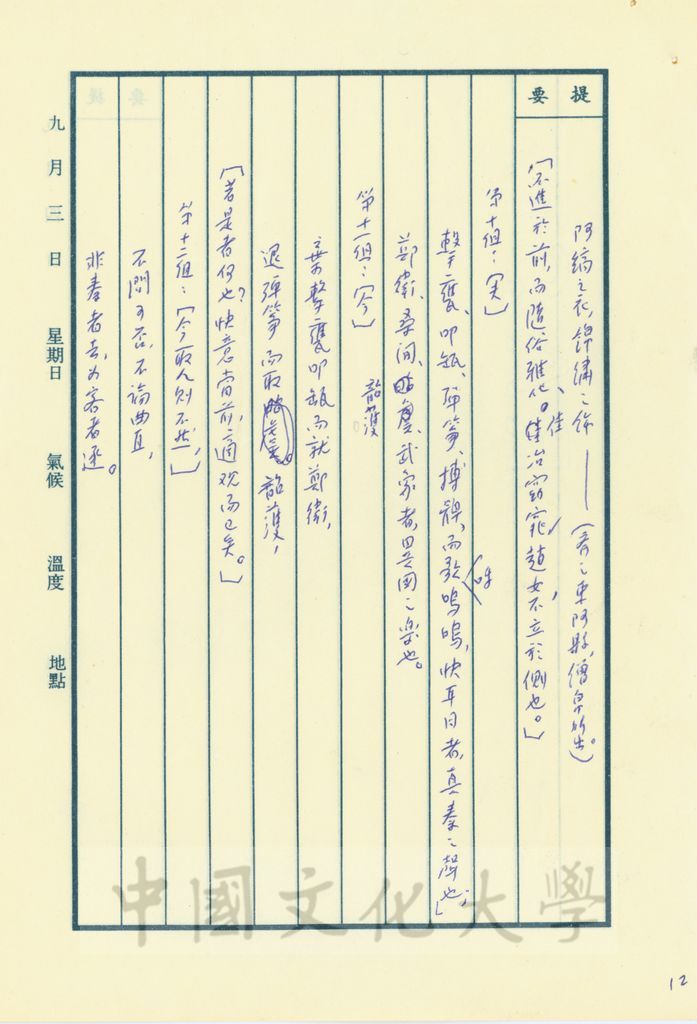 提要
阿縞之衣，錦繡之飾——（齊之東阿縣，繒帛所出。）
「不進於前，而隨俗雅化、佳冶窈窕，趙女不立於側也。」
第十組：「夫」
擊甕、叩缻、彈箏、搏髀，而歌呼嗚嗚，快耳目者，真秦之聲也；」
鄭衛、桑間、韶虞、武象者，異國之樂也。
第十一組：「今」
韶護
棄擊甕叩缻而就鄭衛，
退彈箏而取韶護，
「若是者何也？快意當前，適观而已矣。」
第十二組：「今取人則不然，」
不問可否，不論曲直，
非秦者去，为客者逐。
九月三日 星期日 氣候 溫度 地點
中國文化大學
12